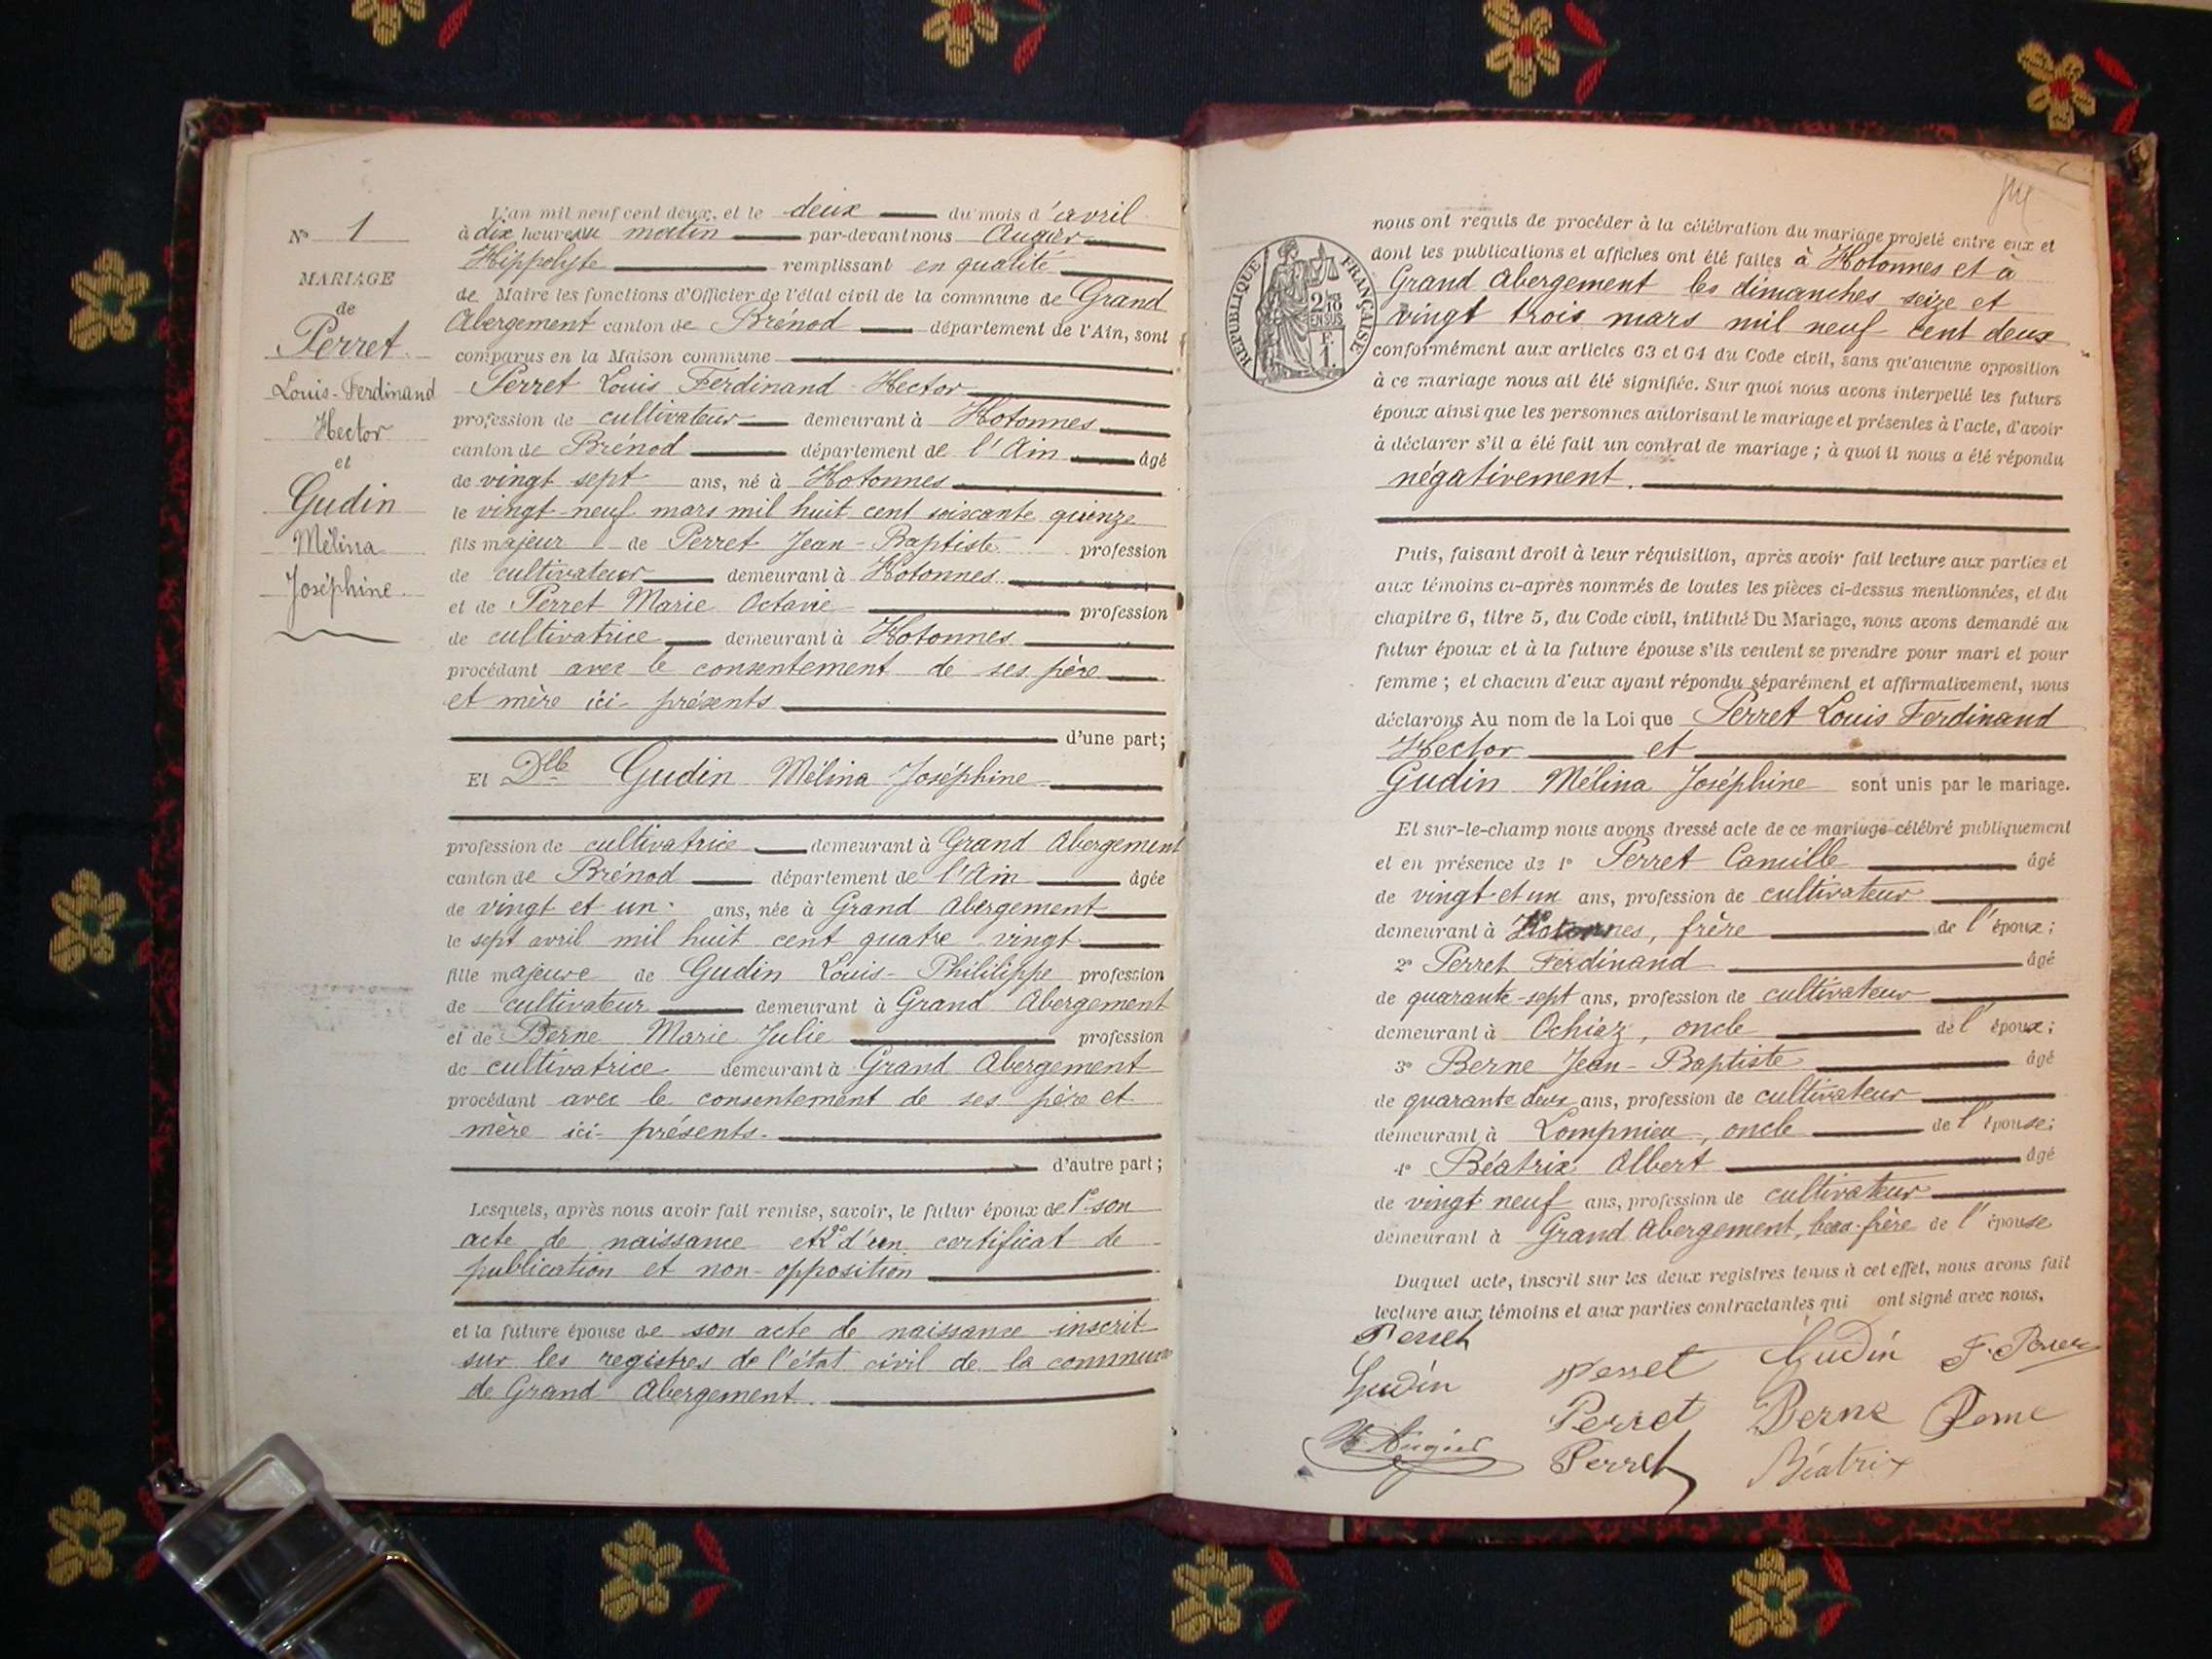 N° 1
MARIAGE
de
Perret
Louis-Ferdinand
Hector
et
Gudin
Mélina
Joséphine
L'an mil neuf cent deux, et le deux du mois d'avril
à dix heures du matin par-devant nous Augier
Hippolyte remplissant en qualité
de Maire les fonctions d'Officier de l'état civil de la commune de Grand
Abergement canton de Brénod département de l'Ain, sont
comparus en la Maison commune
Perret Louis Ferdinand Hector
profession de cultivateur demeurant à Hotonnes
canton de Brénod département de l'Ain âgé
de vingt sept ans, né à Hotonnes
le vingt-neuf mars mil huit cent soixante quinze
fils majeur de Perret Jean-Baptiste profession
de cultivateur demeurant à Hotonnes
et de Perret Marie Octavie profession
de cultivatrice demeurant à Hotonnes
procédant avec le consentement de ses père
et mère ici-présents
d'une part;
Et Dlle Gudin Mélina Joséphine
profession de cultivatrice demeurant à Grand Abergement
canton de Brénod département de l'Ain âgée
de vingt et un ans, née à Grand Abergement
le sept avril mil huit cent quatre vingt
fille majeure de Gudin Louis-Phililippe profession
de cultivateur demeurant à Grand Abergement
et de Berne Marie Julie profession
de cultivatrice demeurant à Grand Abergement
procédant avec le consentement de ses père et
mère ici-présents.
d'autre part;
Lesquels, après nous avoir fait remise, savoir, le futur époux de 1° son
acte de naissance et 2° d'un certificat de
publication et non-opposition
et la future épouse de son acte de naissance inscrit
sur les registres de l'état civil de la commune
de Grand Abergement.
nous ont requis de procéder à la célébration du mariage projeté entre eux et
dont les publications et affiches ont été faites à Hotonnes et à
Grand Abergement les dimanches seize et
vingt trois mars mil neuf cent deux
conformément aux articles 63 et 64 du Code civil, sans qu'aucune opposition
à ce mariage nous ait été signifiée. Sur quoi nous avons interpellé les futurs
époux ainsi que les personnes autorisant le mariage et présentes à l'acte, d'avoir
à déclarer s'il a été fait un contrat de mariage; à quoi il nous a été répondu
négativement.
REPUBLIQUE FRANÇAISE
2/10 EN SUS
1 F.
Puis, faisant droit à leur réquisition, après avoir fait lecture aux parties et
aux témoins ci-après nommés de toutes les pièces ci-dessus mentionnées, et du
chapitre 6, titre 5, du Code civil, intitulé Du Mariage, nous avons demandé au
futur époux et à la future épouse s'ils veulent se prendre pour mari et pour
femme; et chacun d'eux ayant répondu séparément et affirmativement, nous
déclarons Au nom de la Loi que Perret Louis Ferdinand
Hector et
Gudin Mélina Joséphine sont unis par le mariage.
Et sur-le-champ nous avons dressé acte de ce mariage célébré publiquement
et en présence de 1° Perret Camille âgé
de vingt et un ans, profession de cultivateur
demeurant à Hotonnes, frère de l'époux;
2° Perret Ferdinand âgé
de quarante-sept ans, profession de cultivateur
demeurant à Ochiaz, oncle de l'époux;
3° Berne Jean-Baptiste âgé
de quarante deux ans, profession de cultivateur
demeurant à Lompnieu, oncle de l'épouse;
4° Béatrix Albert âgé
de vingt neuf ans, profession de cultivateur
demeurant à Grand Abergement, beau-frère de l'épouse
Duquel acte, inscrit sur les deux registres tenus à cet effet, nous avons fait
lecture aux témoins et aux parties contractantes qui ont signé avec nous.
Perret
Gudin Perret Gudin F. Perret
Perret Berne Berne
H Augier Perret Béatrix